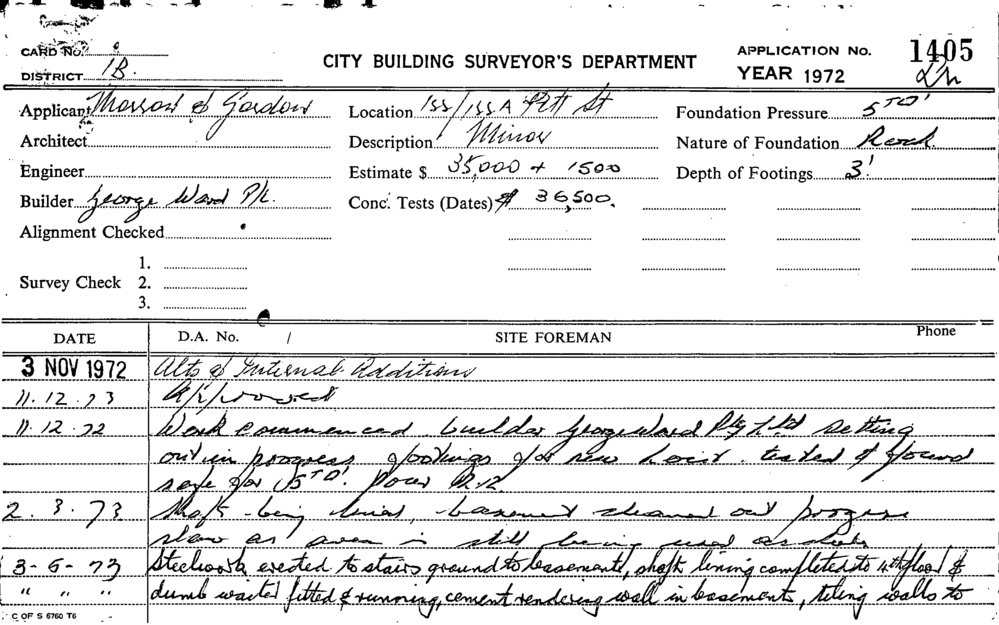 CARD No.
DISTRICT 1B.
CITY BUILDING SURVEYOR'S DEPARTMENT
APPLICATION No. 1405
YEAR 1972
Applicant Morrow & Gordon
Location 155/155A Pitt St
Foundation Pressure 5TD'
Architect
Description Minor
Nature of Foundation Rock
Engineer
Estimate $ 35,000 + 1500
Depth of Footings 3'
Builder George Ward P/L.
Conc. Tests (Dates) $ 36,500.
Alignment Checked
Survey Check 1.
2.
3.
DATE D.A. No. / SITE FOREMAN Phone
3 NOV 1972 Alts & Internal Additions
11.12.73 Approved
11.12.72 Work commenced builder George Ward Pty Ltd setting
out in progress footings for new hoist. tested & found
safe for 15TD'. Pour
2.3.73 Shaft being lined, basement cleaned out progress
slow as area is still being used as
3-6-73 Steelwork erected to stairs ground to basements, shaft lining completed to 4th floor &
" " " dumb waiter fitted & running, cement rendering wall in basements, tiling walls to
C OF S 6760 T6